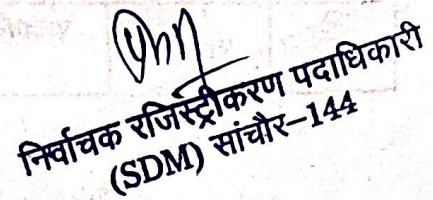 निर्वाचक रजिस्ट्रीकरण पदाधिकारी
(SDM) सांचौर-144